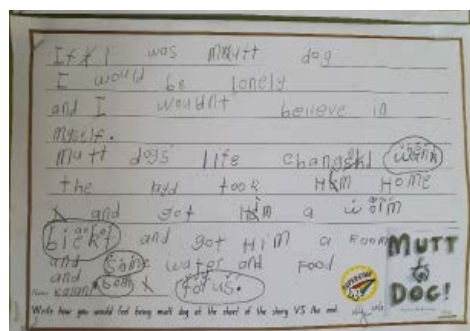 If I was mutt dog
I would be lonely
and I wouldnt believe in
myself.
mutt dogs life changed
the took Him Home
and got Him a
and got Him a Room
and some water and Food
and
MUTT
DOG!
Write how you would feel being mutt dog at the start of the story VS the end.